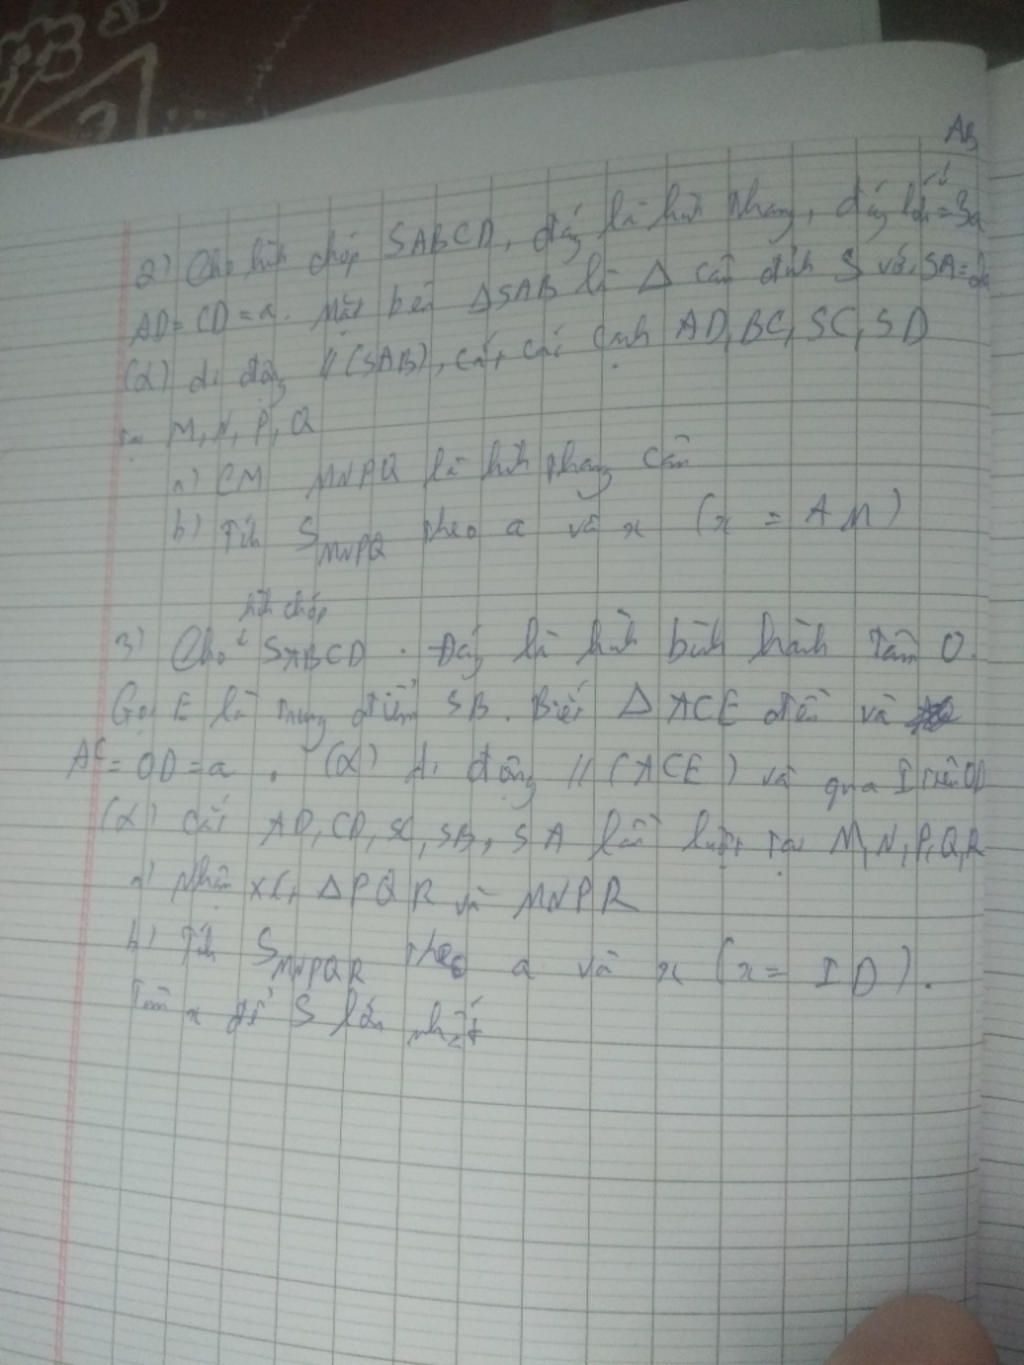 AB
2) Cho hình chóp SABCD, đáy là hình thang, đáy lớn = 3a
AD = CD = a. Mặt bên ΔSAB là Δ cân đỉnh S với SA = 2a
(α) di động // (SAB), cắt các cạnh AD, BC, SC, SD
tại M, N, P, Q
a) CM MNPQ là hình thang cân
b) Tính S_MNPQ theo a và x (x = AM)
hình chóp
3) Cho SABCD. Đáy là hình bình hành tâm O.
Gọi E là trung điểm SB. Biết Δ ACE đều và
AC = OD = a. (α) di động // (ACE) và qua I trên OD
(α) cắt AD, CD, SC, SB, SA lần lượt tại M, N, P, Q, R
a) Nhận xét ΔPQR và MNPR
b) Tính S_MNPQR theo a và x (x = ID).
Tìm x để S lớn nhất